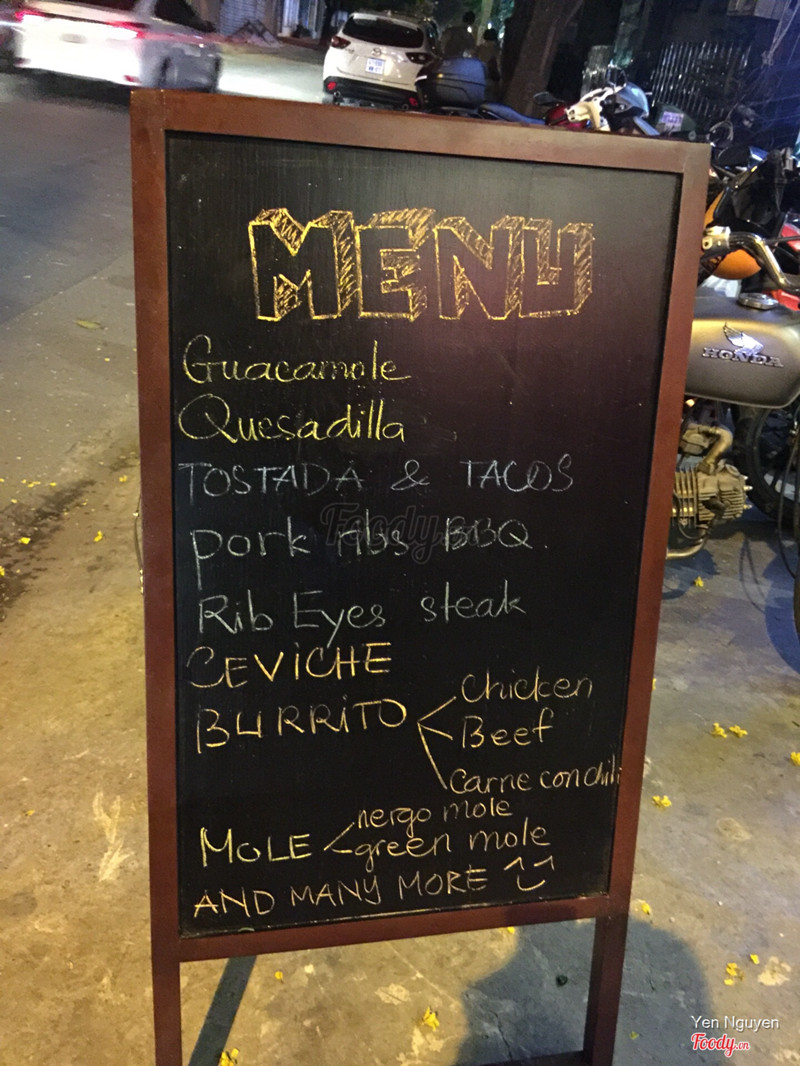 MENU
Guacamole
Quesadilla
TOSTADA & TACOS
pork ribs BBQ.
Rib Eyes steak
CEVICHE
BURRITO
Chicken
Beef
Carne con chili
MOLE
nergo mole
green mole
AND MANY MORE
HONDA
Foody.vn
Yen Nguyen
Foody.vn